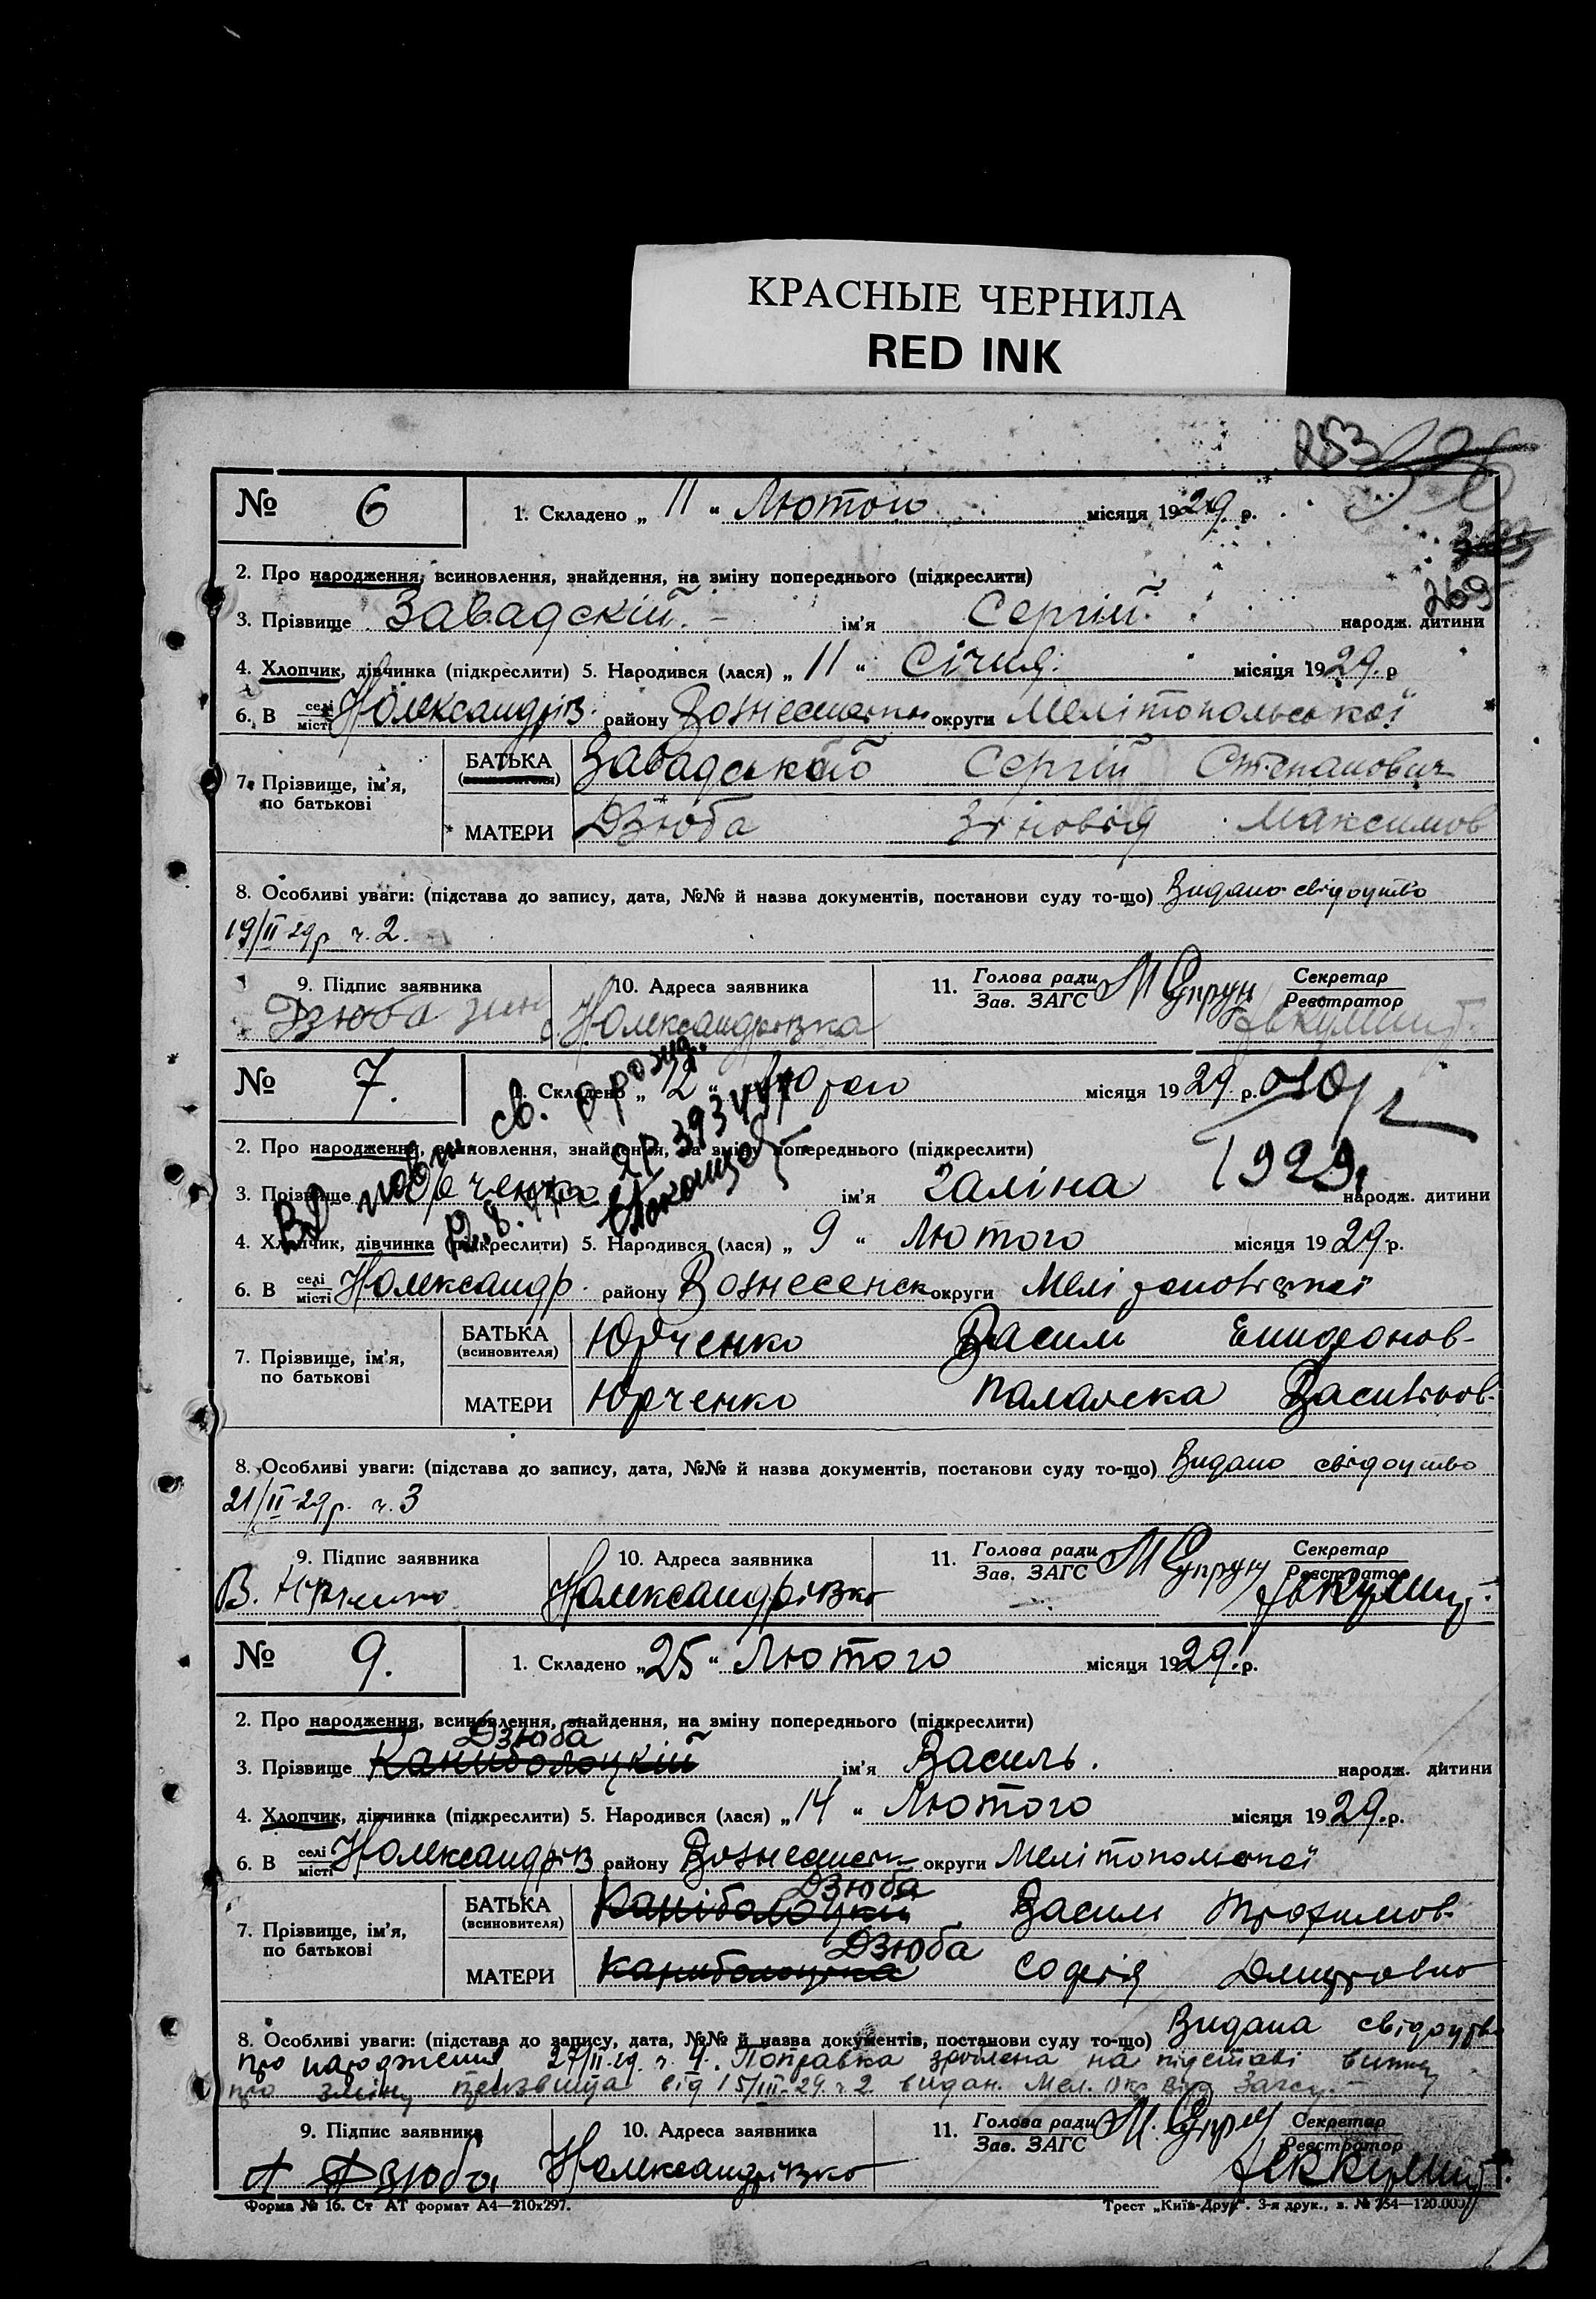 КРАСНЫЕ ЧЕРНИЛА
RED INK
253
269
№ 6 1. Складено „ 11 “ Лютого місяця 1929 р.
2. Про народження, всиновлення, знайдення, на зміну попереднього (підкреслити)
3. Прізвище Завадскій ім'я Сергій народж. дитини
4. Хлопчик, дівчинка (підкреслити) 5. Народився (лася) „ 11 “ Січня місяця 1929. р
6. В селі місті Н Олександрів. району округи Мелітопольської
7. Прізвище, ім'я, по батькові
БАТЬКА Сергій Степанович
МАТЕРИ Дзюба Зіновія Максимов
8. Особливі уваги: (підстава до запису, дата, №№ й назва документів, постанови суду то-що) Видано свідоцтво
19/II 29р ч. 2.
9. Підпис заявника 10. Адреса заявника 11. Голова ради Зав. ЗАГС М Супрун Секретар Реєстратор
Дзюба Зин Н Олександрівка
№ 7. 1. Складено „ 12 “ Лютого місяця 1929 р.
1929
св. о рожд.
2. Про народження, всиновлення, знайдення, на зміну попереднього (підкреслити)
3. Прізвище Юрченко ім'я Галіна народж. дитини
4. Хлопчик, дівчинка (підкреслити) 5. Народився (лася) „ 9 “ Лютого місяця 1929 р.
6. В селі місті Н Олександр. району Вознесенск округи
7. Прізвище, ім'я, по батькові
БАТЬКА (всиновителя) Юрченко Василь
МАТЕРИ Юрченко Палажка
8. Особливі уваги: (підстава до запису, дата, №№ й назва документів, постанови суду то-що) Видано свідоцтво
21/II-29р. ч. 3
9. Підпис заявника 10. Адреса заявника 11. Голова ради Зав. ЗАГС М Супрун Секретар Реєстратор
В. Юрченко Н Олександрівка
№ 9. 1. Складено „ 25 “ Лютого місяця 1929. р.
2. Про народження, всиновлення, знайдення, на зміну попереднього (підкреслити)
Дзюба
3. Прізвище Каниболоцкій ім'я Василь. народж. дитини
4. Хлопчик, дівчинка (підкреслити) 5. Народився (лася) „ 14 “ Лютого місяця 1929. р.
6. В селі місті Н Олександрів району округи Мелітопольскої
7. Прізвище, ім'я, по батькові
Дзюба
БАТЬКА (всиновителя) Каніболоцкій Василь Трофимов-
Дзюба
МАТЕРИ Каниболоцка Софія Дмитровна
8. Особливі уваги: (підстава до запису, дата, №№ й назва документів, постанови суду то-що) Видана свідоцтво
про народження 27/II-29. ч. 4. Поправка зроблена на підставі
про зміну прізвища від 15/III-29. ч 2. видан. Мел. Окр Загсу.
9. Підпис заявника 10. Адреса заявника 11. Голова ради Зав. ЗАГС М. Супрун Секретар Реєстратор
Дзюба Н Олександрівка
Форма № 16. Ст АТ формат А4—210x297. Трест „Київ-Друк“. 3-я друк., з. № 754—120.000